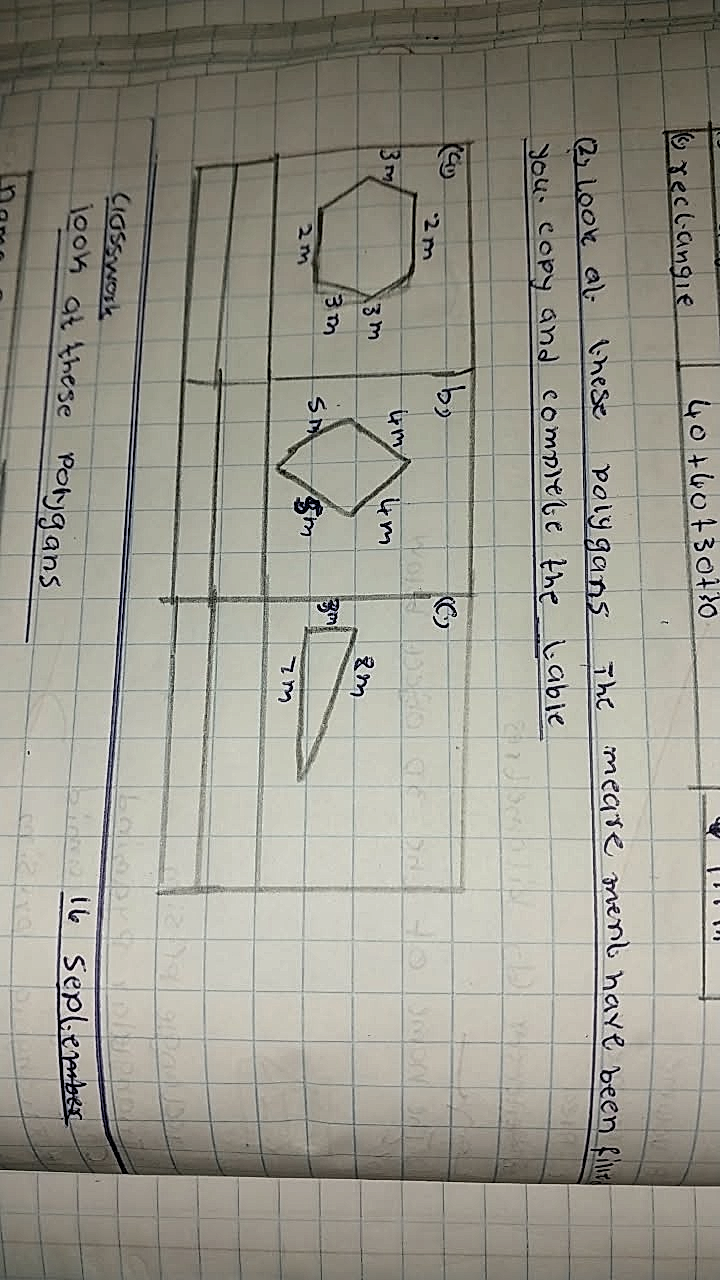 (6) rectangle
40+40+30+30
(2) Look at these polygans The meare ment have been
you. copy and complete the table
(a)
b)
(c)
3m
2m
3m
3m
2m
4m
4m
5m
5m
3m
8m
7m
Classwork
16 September
look at these polygans